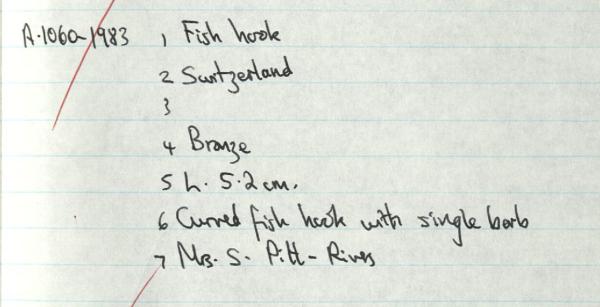 A.1060-1983 1 Fish hook
2 Switzerland
3
4 Bronze
5 L. 5.2 cm.
6 Curved fish hook with single barb
7 Mrs. S. Pitt-Rivers